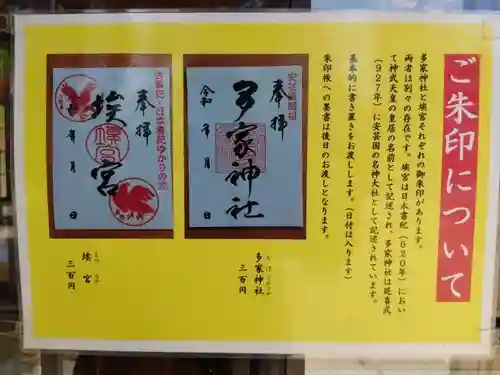 ご朱印について
多家神社と埃宮それぞれの御朱印があります。
両者は別々の存在です。埃宮は日本書紀(620年)におい
て神武天皇の皇居の名前として記述され、多家神社は延喜式
(927年)に安芸国の名神大社として記述されています。
基本的に書き置きをお渡しします。(日付は入ります)
朱印帳への墨書は後日のお渡しとなります。
奉拝
多家神社
令和 年 月 日
多家神社
三百円
古事記・日本書紀ゆかりの地
奉拝
埃宮
年 月 日
埃宮
三百円